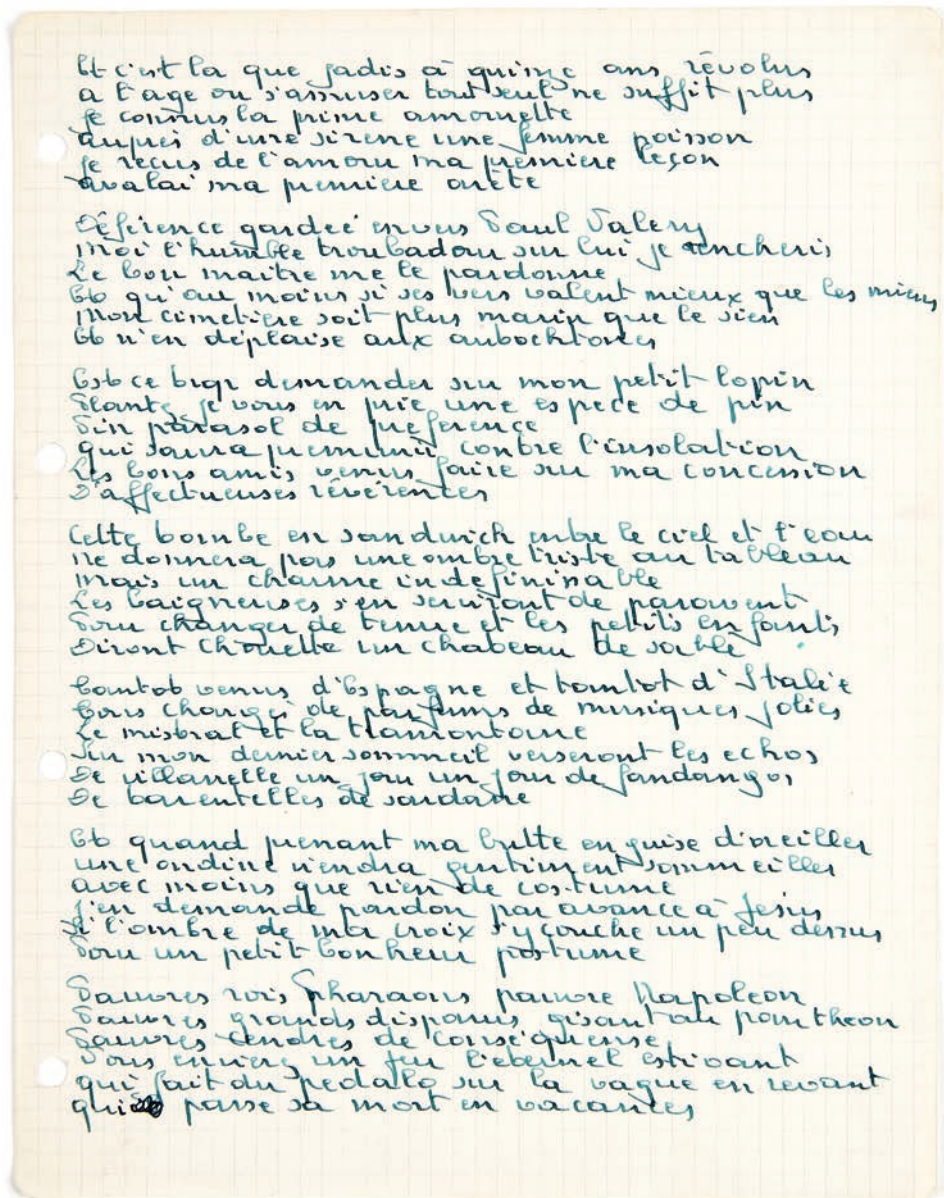 Et c'est la que jadis à quinze ans révolus
a l'age ou s'amuser tout seul ne suffit plus
je connus la prime amourette
auprès d'une sirene une femme poisson
je reçus de l'amour ma première leçon
avalai ma premiere arête

Déférence gardée envers Paul Valery
moi l'humble troubadour sur lui je rencheris
Le bon maitre me le pardonne
Et qu'au moins si ses vers valent mieux que les miens
Mon cimetière soit plus marin que le sien
Et n'en déplaise aux autochtones

Est ce trop demander sur mon petit lopin
Plantez je vous en prie une espece de pin
Pin parasol de preference
qui saura prémunir contre l'insolation
Les bons amis venus faire sur ma concession
D'affectueuses révérences

Cette tombe en sandwich entre le ciel et l'eau
ne donnera pas une ombre triste au tableau
mais un charme indefininable
Les baigneuses s'en serviront de paravent
Pour changer de tenue et les petits enfants
Diront chouette un chateau de sable

Tantot venus d'Espagne et tantot d'Italie
Tous chargés de parfums de musiques jolies
Le mistral et la tramontane
Sur mon dernier sommeil verseront les echos
De villanelle un jour un jour de fandangos
De tarentelles de sardane

Et quand prenant ma butte en guise d'oreiller
une ondine viendra gentiment sommeiller
avec moins que rien de costume
J'en demande pardon par avance à Jesus
Si l'ombre de ma croix s'y couche un peu dessus
Pour un petit bonheur postume

Pauvres rois Pharaons pauvre Napoleon
Pauvres grands disparus gisant au pantheon
Pauvres cendres de conséquense
Vous envierez un peu l'eternel estivant
qui fait du pedalo sur la vague en revant
qui passe sa mort en vacances